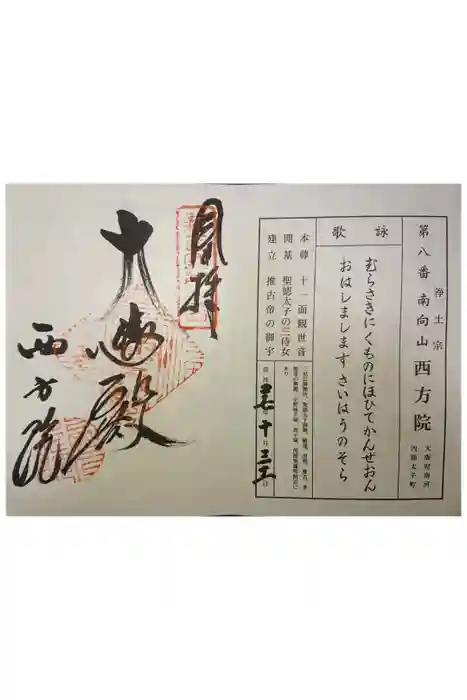 第八番 南向山 西方院
浄土宗
大阪府南河
内郡太子町
詠歌
むらさきにくものにほひてかんぜおん
おはしましますさいはうのそら
本尊 十一面観世音
開基 聖徳太子の三侍女
建立 推古帝の御宇
十 三 日
奉拝
大悲殿
西方院